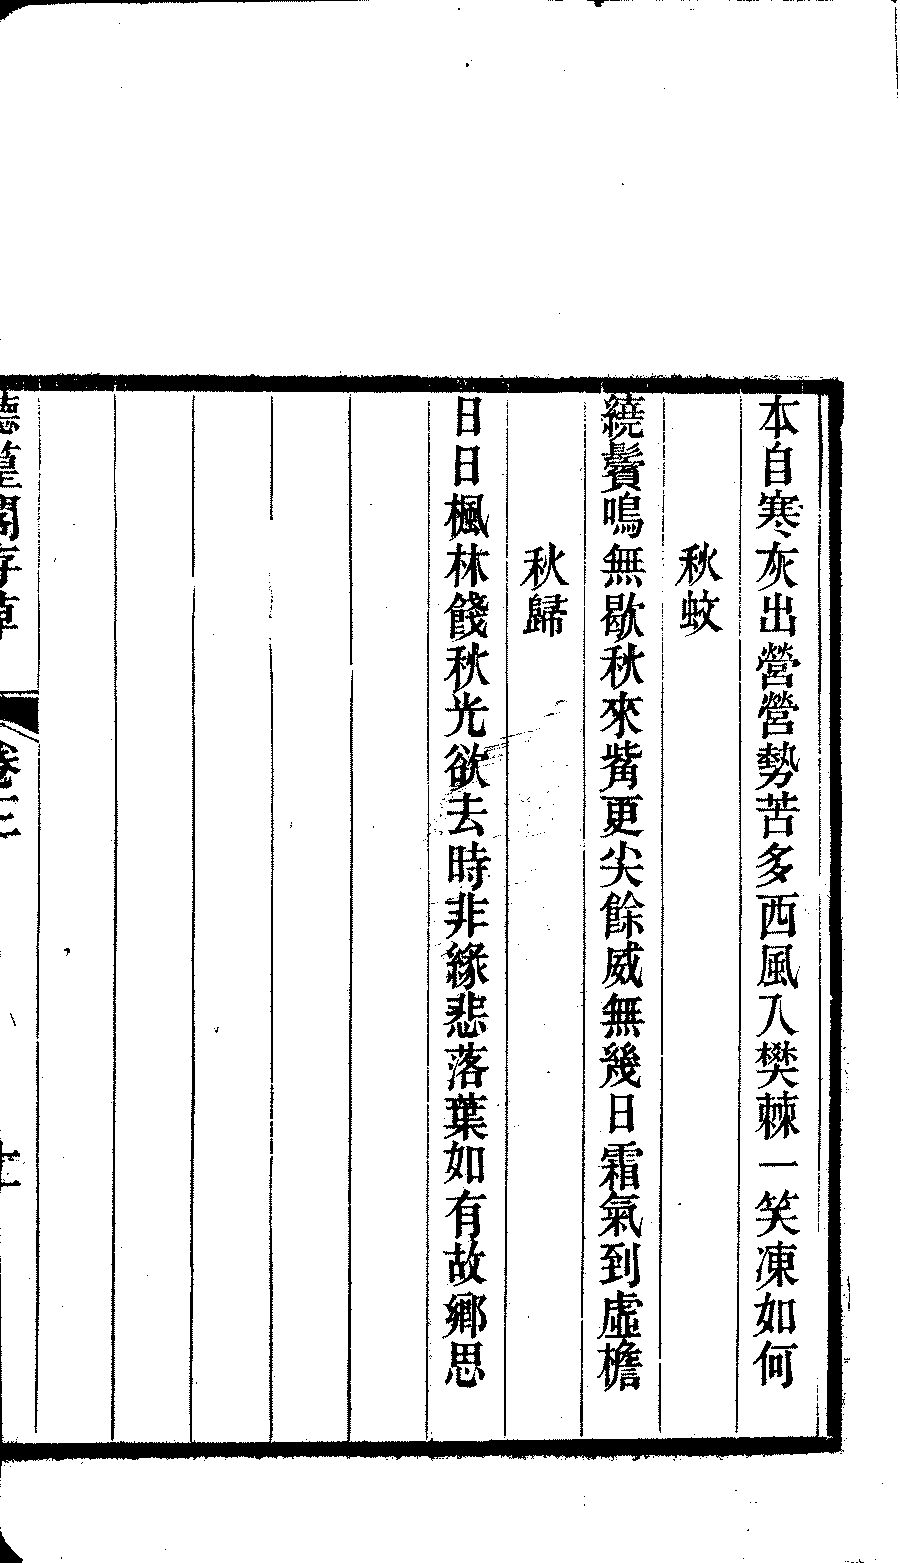 本自寒灰出營營勢苦多西風入樊棘一笑凍如何
秋蚊
繞鬢鳴無歇秋來觜更尖餘威無幾日霜氣到虛檐
秋歸
日日楓林餞秋光欲去時非緣悲落葉如有故鄉思
閣存草
卷二